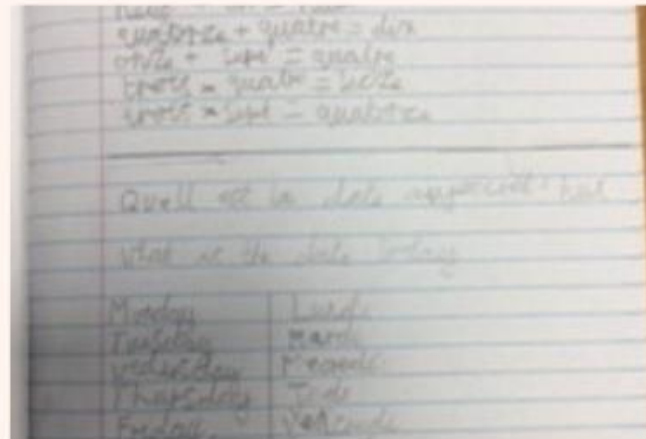 quatorze + quatre = dix
onze + sept = quatre
trois - quatre = seize
trois * sept = quatorze
Quell est la date aujourd'hui
What is the date today
Monday Lundi
Tuesday Mardi
Wednesday Mercredi
Thursday Jeudi
Friday Vendredi